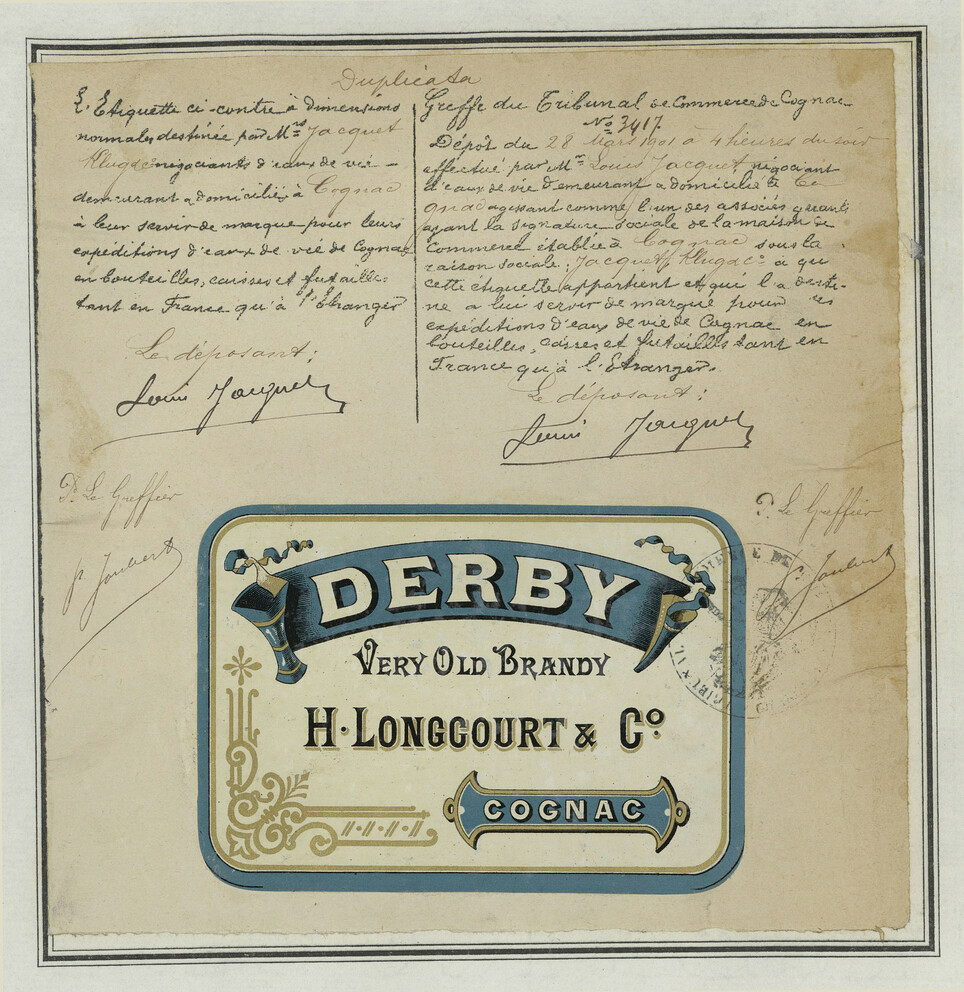 Duplicata
L'Etiquette ci-contre à dimensions
normales destinée par Mrs Jacquet
Klug & Cie négociants d'eaux de vie -
demeurant & domiciliés à Cognac
à leur servir de marque pour leurs
expéditions d'eaux de vie de Cognac
en bouteilles, caisses et futailles
tant en France qu'à l'Etranger
Le déposant:
Louis Jacquet
Greffe du Tribunal de Commerce de Cognac
No 3417.
Dépôt du 28 Mars 1901 à 4 heures du soir
effectué par Mr Louis Jacquet, négociant
d'eaux de vie demeurant & domicilié à Co
gnac agissant comme l'un des associés gérants
ayant la signature sociale de la maison de
Commerce établie à Cognac sous la
raison sociale: Jacquet, Klug & Co à qui
cette étiquette appartient et qui l'a desti-
ne à lui servir de marque pour ses
expéditions d'eaux de vie de Cognac en
bouteilles, caisses et futailles tant en
France qu'à l'Etranger.
Le déposant:
Louis Jacquet
Le Greffier
Joubert
Le Greffier
Joubert
DERBY
VERY OLD BRANDY
H. LONGCOURT & Co
COGNAC